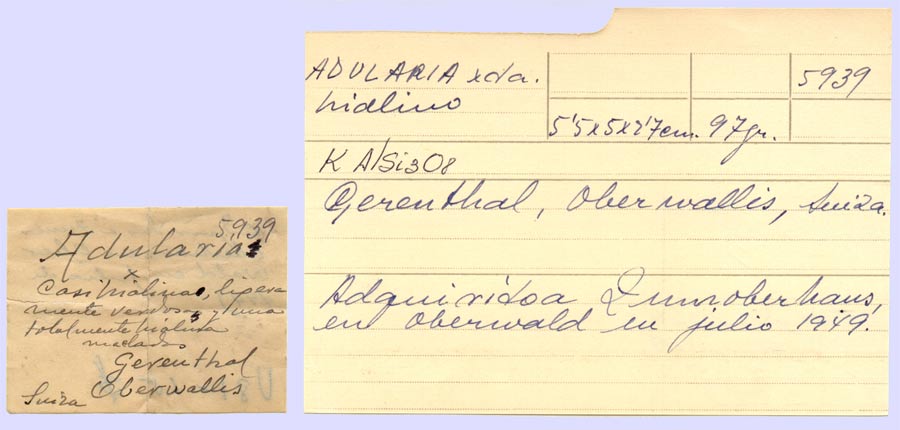 5939
Adularia
x
Casi hialina, ligera
mente verdosa y una
totalmente hialina
maclados
Gerenthal
Oberwallis
Suiza
ADULARIA xda.
hialino
5939
5'5x5x2'7cm. 97gr.
K AlSi3O8
Gerenthal, Oberwallis, Suiza.
Adquirido a Zumoberhaus,
en Oberwald en julio 1949.